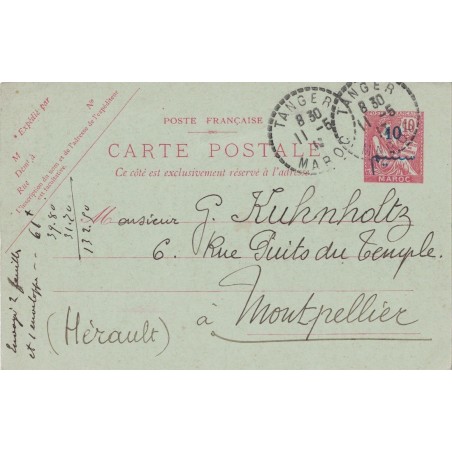 * Expédié par
M
Demt à
Rue
N°
* L'inscription du nom et de l'adresse de l'expéditeur
est facultative.
POSTE FRANÇAISE
CARTE POSTALE
Ce côté est exclusivement réservé à l'adresse
TANGER
8 30
11 -5
MAROC
TANGER
8 30
11 -5
10
10
MAROC
Monsieur G. Kuhnholtz
6. Rue Puits du Temple.
à Montpellier
(Hérault)
Envoyé 2 feuilles
et 1 enveloppe --